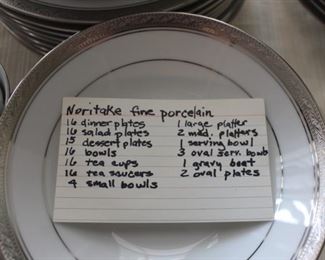 Noritake fine porcelain
16 dinner plates
16 salad plates
15 dessert plates
16 bowls
16 tea cups
16 tea saucers
4 small bowls
1 large platter
2 med. platters
1 serving bowl
3 oval serv. bowls
1 gravy boat
2 oval plates